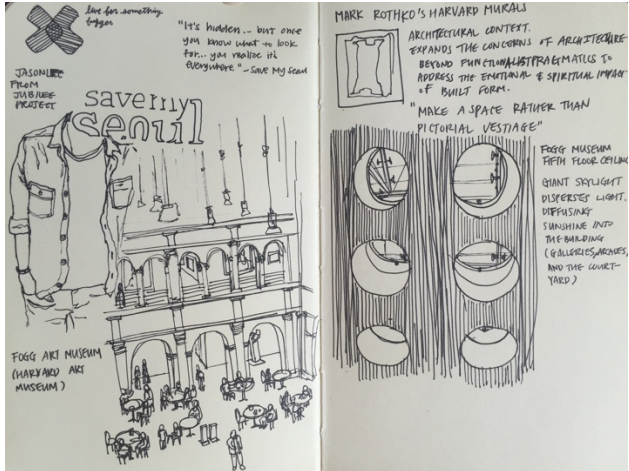 live for something
bigger
"It's hidden... but once
you know what to look
for... you realize it's
everywhere." - Save My Seoul
JASON LEE
FROM
JUBILEE
PROJECT
save my
seoul
FOGG ART MUSEUM
(HARVARD ART
MUSEUM)
MARK ROTHKO'S HARVARD MURALS
ARCHITECTURAL CONTEXT.
EXPANDS THE CONCERNS OF ARCHITECTURE
BEYOND FUNCTIONALIST PRAGMATICS TO
ADDRESS THE EMOTIONAL & SPIRITUAL IMPACT
OF BUILT FORM.
"MAKE A SPACE RATHER THAN
PICTORIAL VESTIAGE"
FOGG MUSEUM
FIFTH FLOOR CEILING
GIANT SKYLIGHT
DISPERSES LIGHT.
DIFFUSING
SUNSHINE INTO
THE BUILDING
(GALLERIES, ARCADES,
AND THE COURT-
YARD)